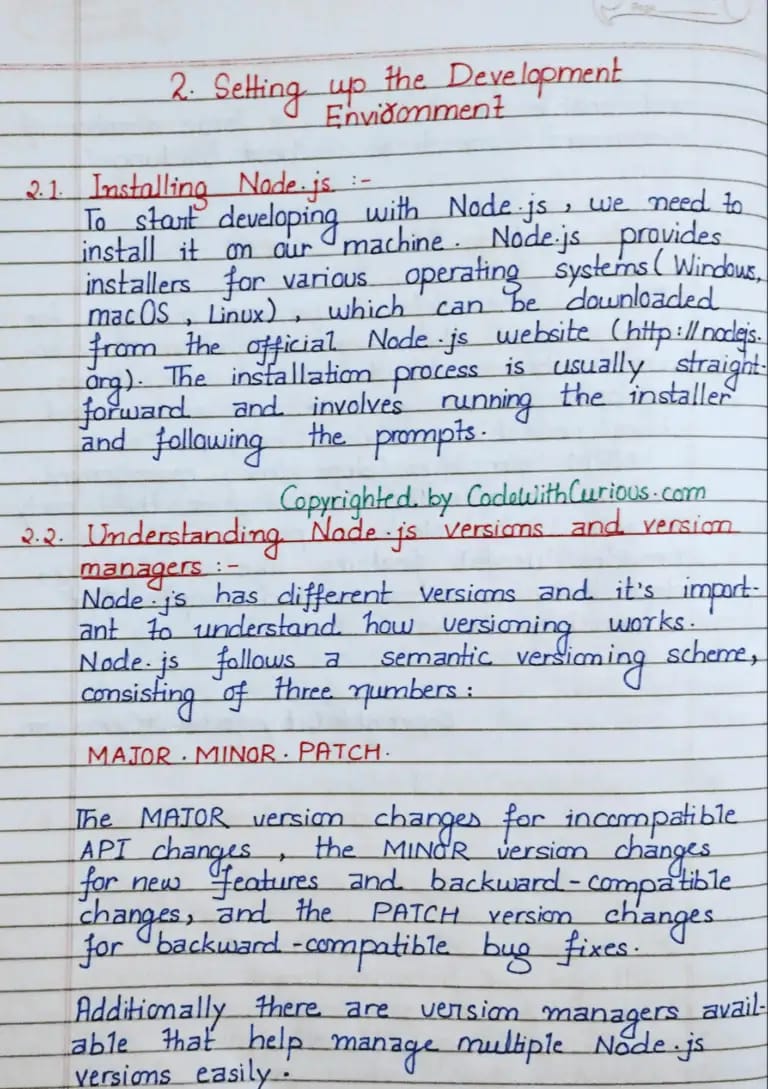 2. Setting up the Development
Environment
2.1. Installing Node.js :-
To start developing with Node.js, we need to
install it on our machine. Node.js provides
installers for various operating systems (Windows,
macOS, Linux), which can be downloaded
from the official Node.js website (http://nodejs.
org). The installation process is usually straight-
forward and involves running the installer
and following the prompts.
Copyrighted by CodeWithCurious.com
2.2. Understanding Node.js versions and version
managers :-
Node.js has different versions and it's import-
ant to understand how versioning works.
Node.js follows a semantic versioning scheme,
consisting of three numbers:
MAJOR.MINOR.PATCH.
The MAJOR version changes for incompatible
API changes, the MINOR version changes
for new features and backward-compatible
changes, and the PATCH version changes
for backward-compatible bug fixes.
Additionally there are version managers avail-
able that help manage multiple Node.js
versions easily.